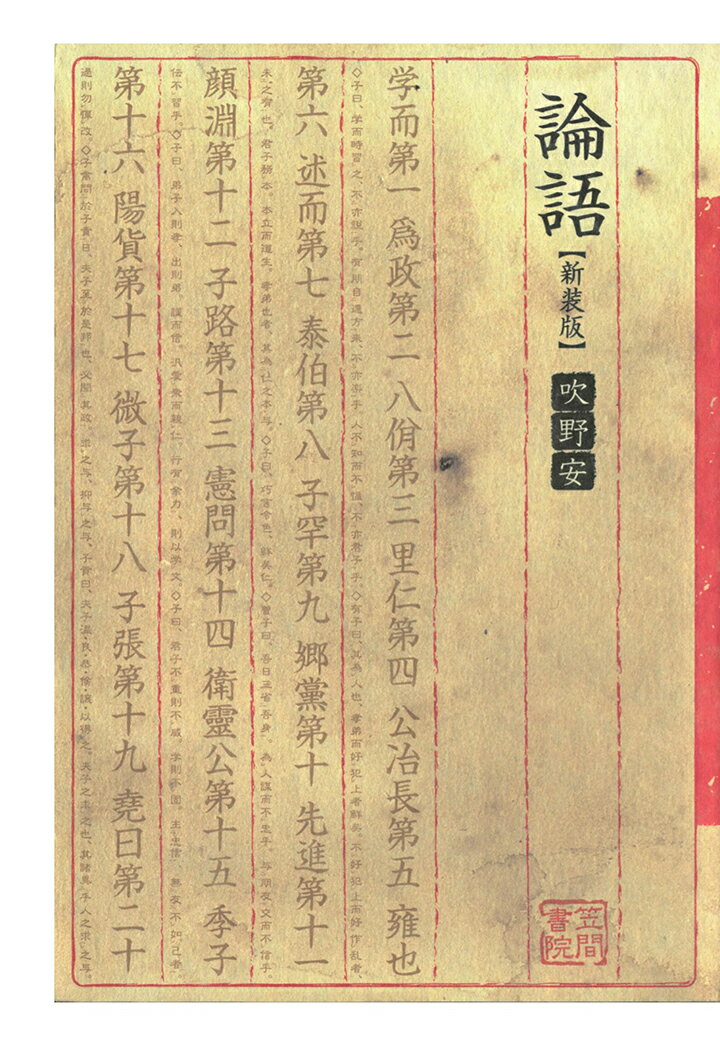 論語
【新装版】
吹野安
笠間
書院
学而第一 爲政第二 八佾第三 里仁第四 公冶長第五 雍也
◇子曰、学而時習之、不亦説乎。有朋自遠方来、不亦楽乎。人不知而不慍、不亦君子乎。◇有子曰、其為人也、孝弟而好犯上者鮮矣。不好犯上而好作乱者、
第六 述而第七 泰伯第八 子罕第九 郷黨第十 先進第十一
未之有也。君子務本。本立而道生。孝弟也者、其為仁之本与。◇子曰、巧言令色、鮮矣仁。◇曽子曰、吾日三省吾身。為人謀而不忠乎。与朋友交而不信乎。
顔淵第十二 子路第十三 憲問第十四 衛靈公第十五 季子
伝不習乎。◇子曰、弟子入則孝、出則弟、謹而信。汎愛衆而親仁。行有余力、則以学文。◇子曰、君子不重則不威。学則不固。主忠信、無友不如己者。
第十六 陽貨第十七 微子第十八 子張第十九 堯曰第二十
過則勿憚改。◇子禽問於子貢曰、夫子至於是邦也、必聞其政。求之与、抑与之与。子貢曰、夫子温・良・恭・倹・譲・以得之。夫子之求之也、其諸異乎人之求之与。